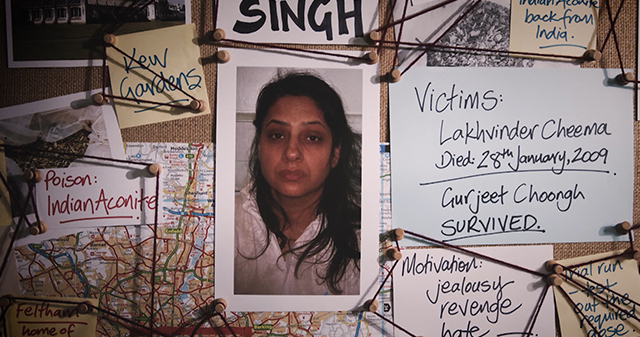 SINGH
Indian Aconite
back from
India.
Kew
Gardens
Victims:
Lakhvinder Cheema
Died: 28th January, 2009
Gurjeet Choongh
SURVIVED.
Poison:
Indian Aconite
Motivation:
jealousy
revenge
hate
trial run
test
out the
required
dose
Feltham
home of